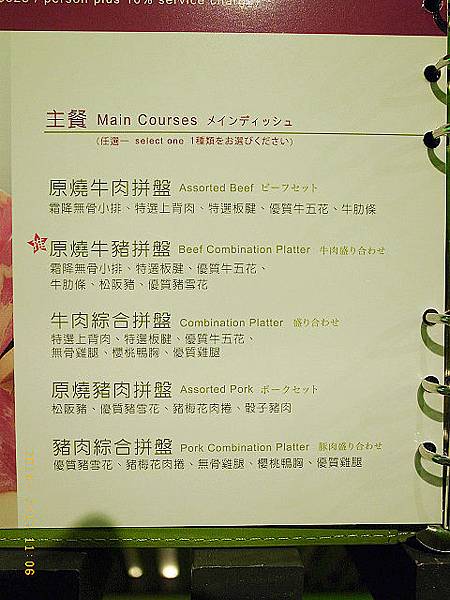 / person plus 10% service charge
主餐 Main Courses メインディッシュ
(任選一 select one 1種類をお選びください)
原燒牛肉拼盤 Assorted Beef ビーフセット
霜降無骨小排、特選上背肉、特選板腱、優質牛五花、牛肋條
原燒牛豬拼盤 Beef Combination Platter 牛肉盛り合わせ
霜降無骨小排、特選板腱、優質牛五花、
牛肋條、松阪豬、優質豬雪花
牛肉綜合拼盤 Combination Platter 盛り合わせ
特選上背肉、特選板腱、優質牛五花、
無骨雞腿、櫻桃鴨胸、優質雞腿
原燒豬肉拼盤 Assorted Pork ポークセット
松阪豬、優質豬雪花、豬梅花肉捲、骰子豬肉
豬肉綜合拼盤 Pork Combination Platter 豚肉盛り合わせ
優質豬雪花、豬梅花肉捲、無骨雞腿、櫻桃鴨胸、優質雞腿